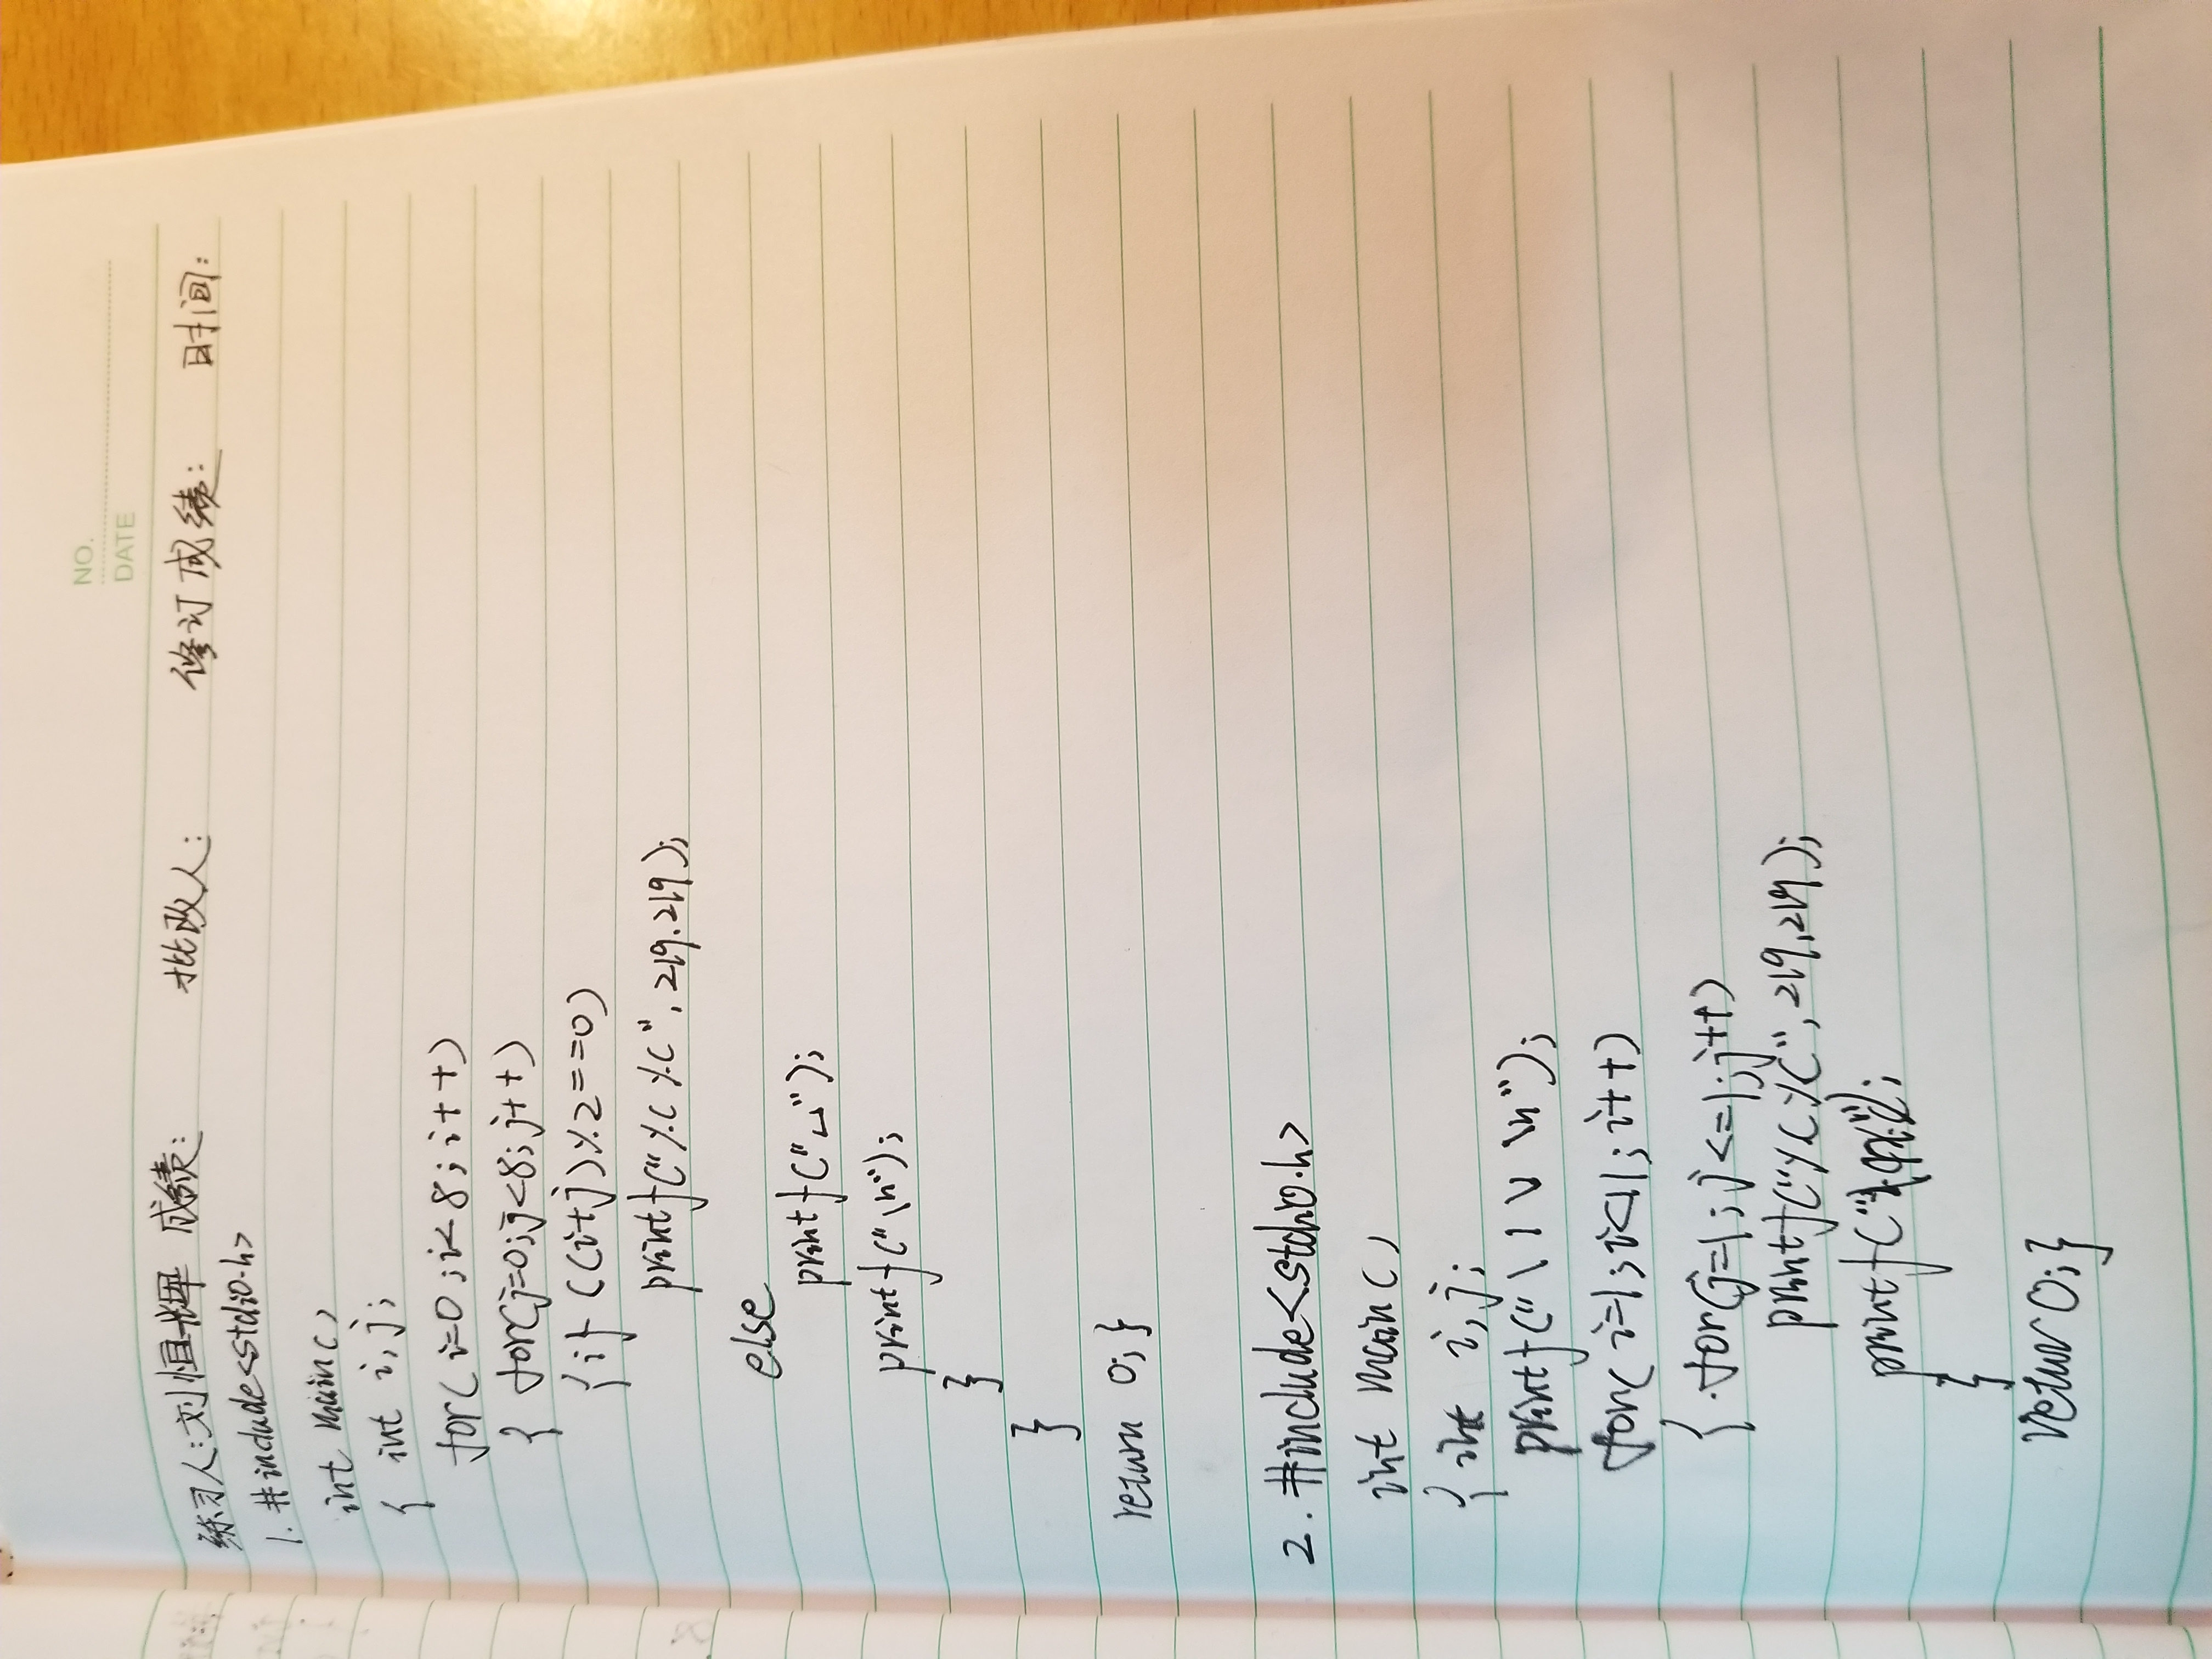 NO.
DATE
练习人:刘恒辉 成绩: 批改人: 修订成绩: 时间:
1. #include<stdio.h>
int main()
{ int i,j;
for(i=0;i<8;i++)
{ for(j=0;j<8;j++)
{if ((i+j)%2==0)
printf("%c%c",219.219);
else
printf("␣");
printf("\n");
}
}
return 0;}
2. #include<stdio.h>
int main()
{ int i,j;
printf("\1\ \n");
for(i=1;i<11;i++)
{ for(j=1;j<=1;j++)
printf("%c%c",219,219);
printf("
}
retur 0;}